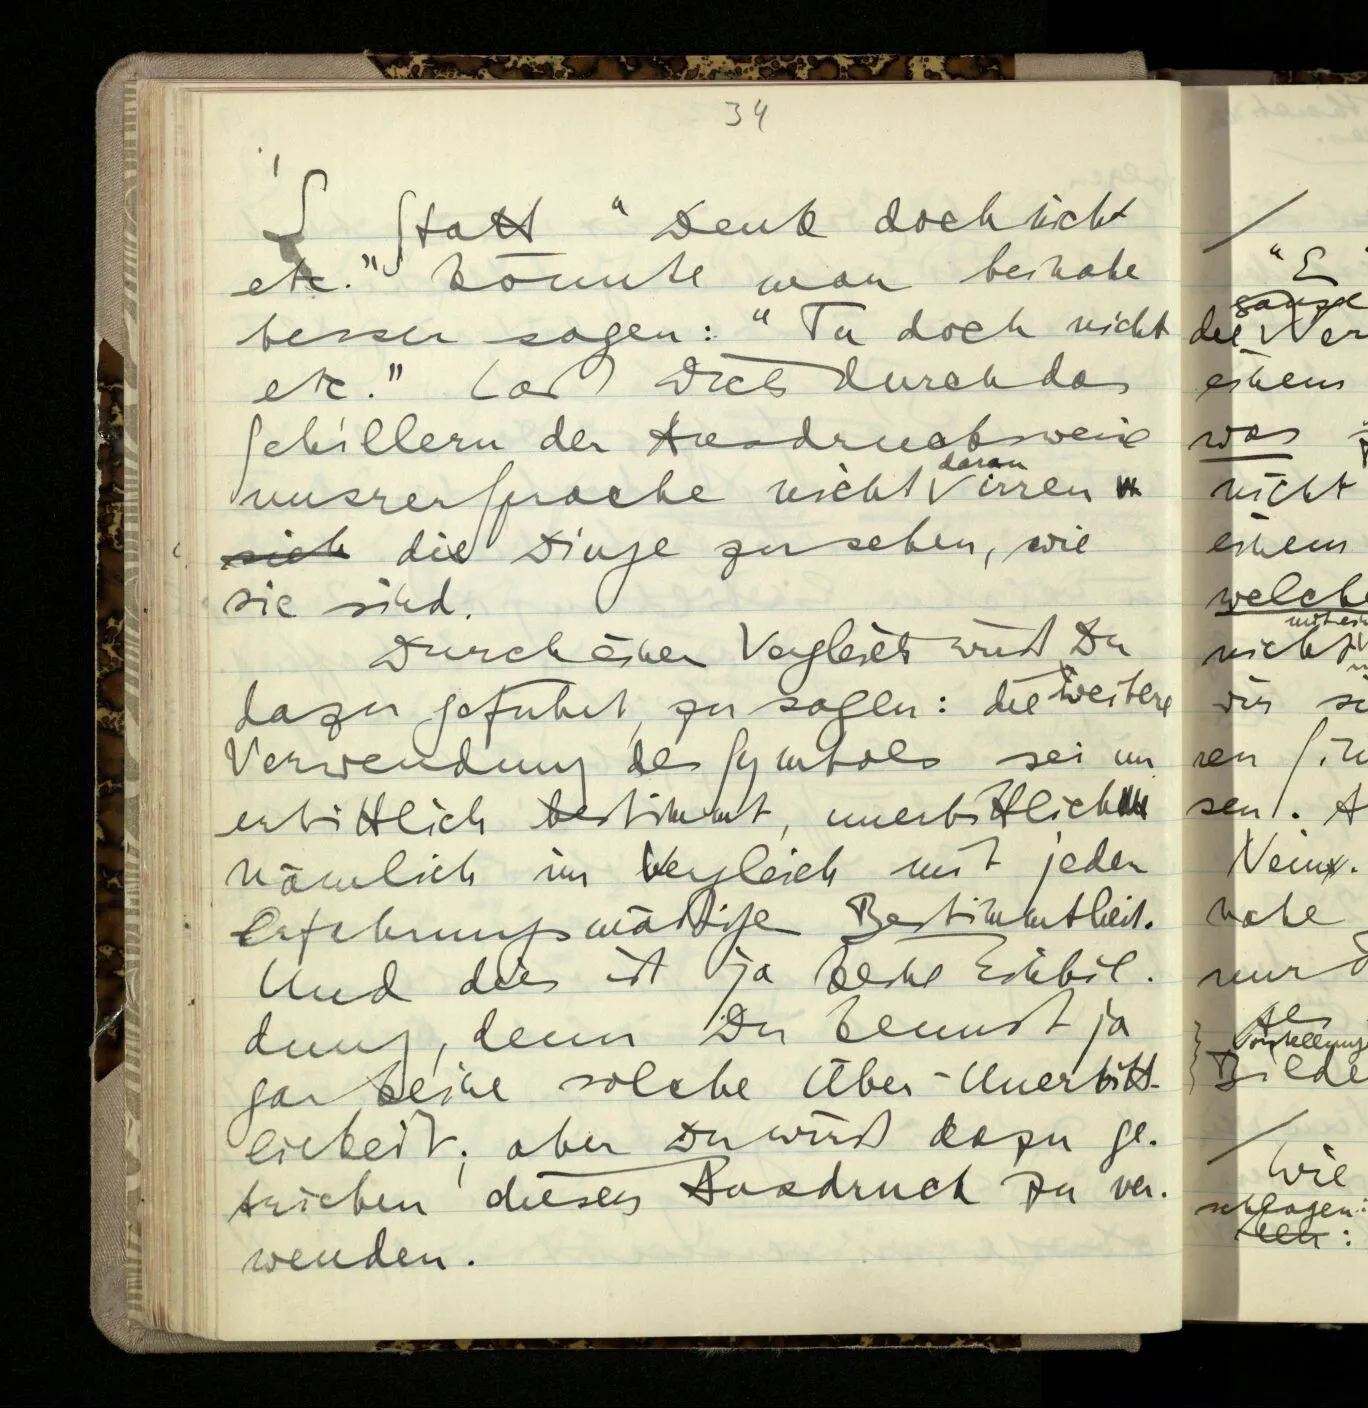 34
S Statt "Denk doch nicht
etc." könnte man beinahe
besser sagen: "Tu doch nicht
etc." Laß Dich durch das
Schillern der Ausdrucksweise
daran
unsrer Sprache nicht irren
sich die Dinge zu sehen, wie
sie sind.
Durch einen Vergleich wirst Du
dazu geführt, zu sagen: die weitere
Verwendung des Symbols sei un
erbittlich bestimmt, unerbittlich
nämlich im Vergleich mit jeder
Erfahrungsmäßigen Bestimmtheit.
Und dies ist ja keine Einbil-
dung, denn Du kennst ja
gar keine solche Über-Unerbitt-
lichkeit; aber Du wirst dazu ge-
trieben diesen Ausdruck zu ver-
wenden.
"E
ganze
die Ver
einem
was
nicht
einem
welche
nicht
wir si
ren Sin
sen. A
Nein.
nahe
nur
der
Vorstellung
Bilde
Wie
schlagen:
: